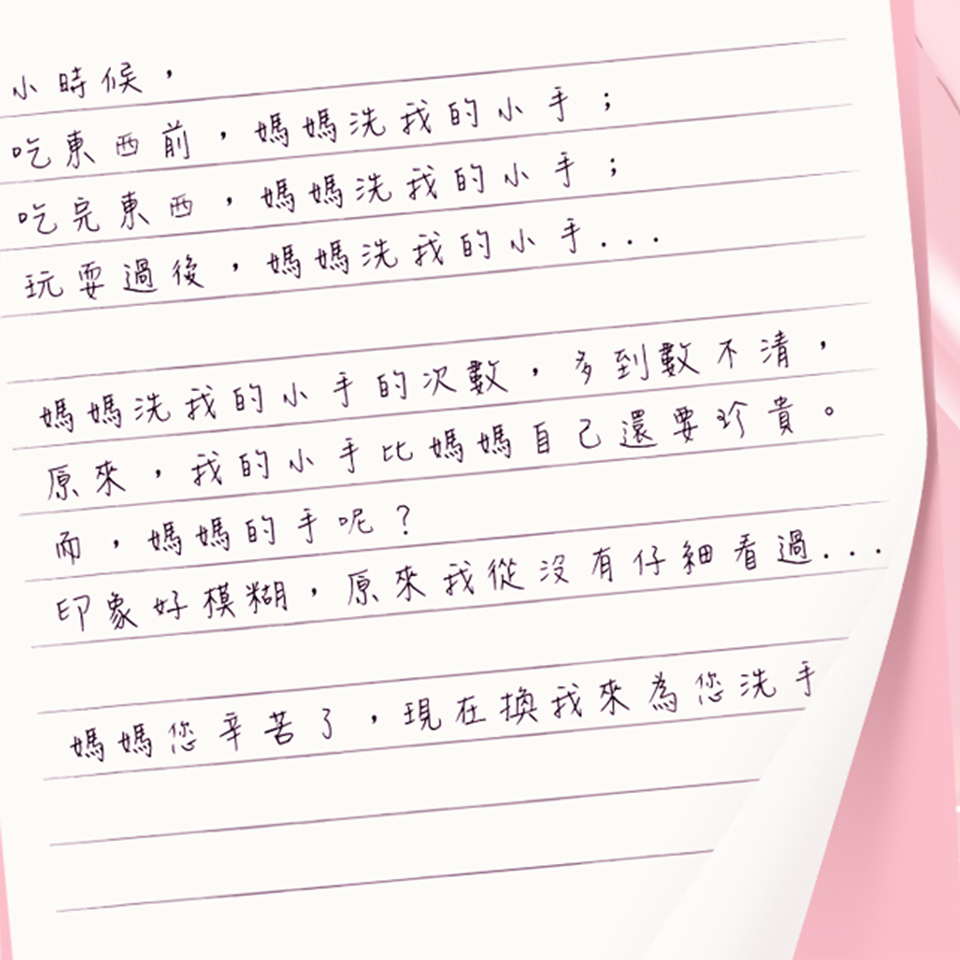 小時候，
吃東西前，媽媽洗我的小手；
吃完東西，媽媽洗我的小手；
玩耍過後，媽媽洗我的小手...
媽媽洗我的小手的次數，多到數不清，
原來，我的小手比媽媽自己還要珍貴。
而，媽媽的手呢？
印象好模糊，原來我從沒有仔細看過...
媽媽您辛苦了，現在換我來為您洗手